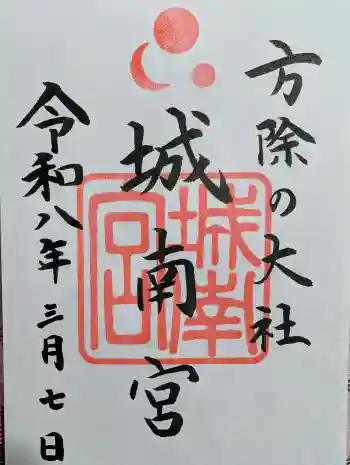 方除の大社
城南宮
令和八年三月七日
城南宮